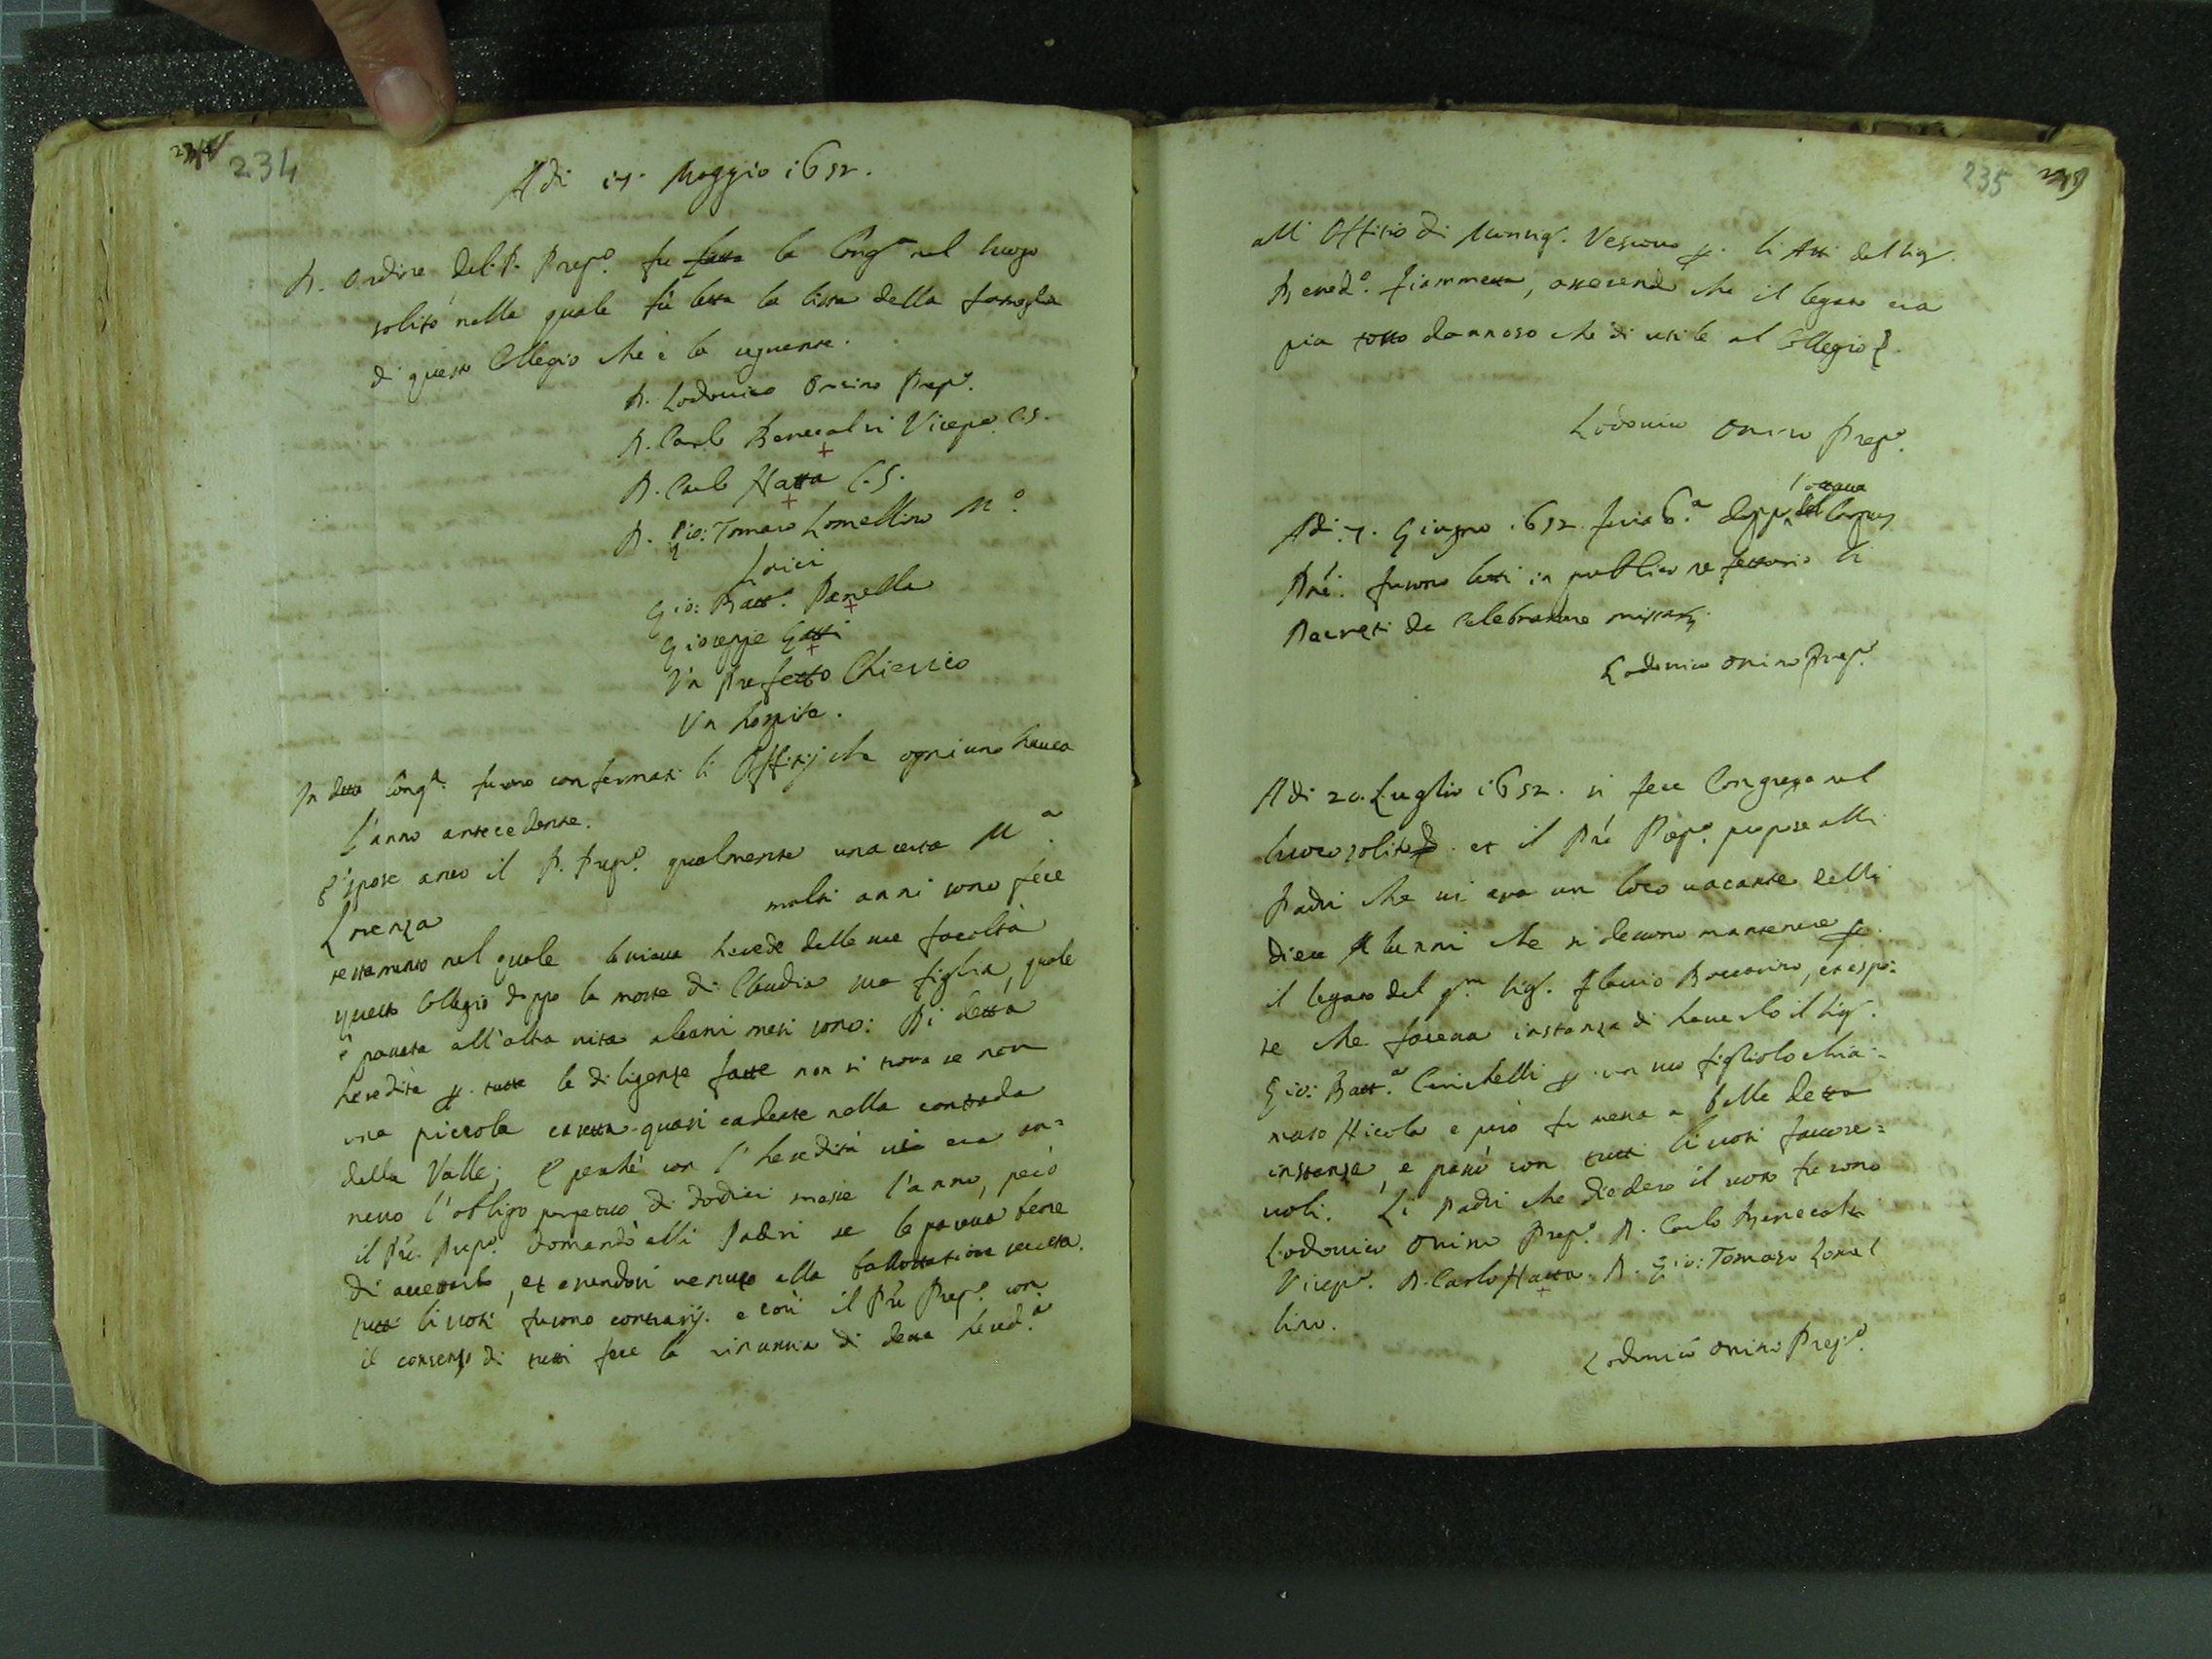 234
Adi 17. Maggio 1652.
D. Ordine del P. Prep.o fu fatta la Cong.a nel luogo
solito nella quale fù letta la lista della famiglia
di questo Collegio che è la seguente.
D. Lodovico Orsino Prep.o
D. Carlo Benecalvi Vicepo. C.S.
D. Carlo Natta C.S.
D. Gio: Tomaso Lomellino M.o
Laici
Gio: Batt.a Panella
Gioseppe Gatti
Un Prefetto Chierico
Un hospite.
In detta Cong.a furono confermati li Offitij che ogni uno haueua
l'anno antecedente.
Espose anco il P. Prep.o qualmente una certa M.a
Lorenza molti anni sono fece
testamento nel quale lasciaua herede delle sue facoltà
questo Collegio doppo la morte di Claudia sua figlia, quale
è passata all'altra uita alcuni mesi sono: Di detta
heredità p. tutte le diligenze fatte non si troua se non
una piccola casetta quasi cadente nella contrada
della Valle; E perché con l'heredità ui era an=
nesso l'obligo perpetuo di dodici messe l'anno, però
il Prê Prep.o domandò alli Padri se le pareua bene
di accettarla, et essendosi uenuto alla ballottatione secreta
tutti li uoti furono contrarij. e così il Prê Prep.o con
il consenso di tutti fece la rinuntia di detta hered.à
235
all'Offitio di Monsig. Vescouo p. li Atti del sig.
Bened.o Fiammetta, asserendo che il legato era
piu tosto dannoso che di utile al Collegio
Lodovico Orsino Prep.o
Adi 7. Giugno 1652 feria 6.a doppo l'ottaua del Corpus
Dñi. furono letti in publico refettorio li
Decreti de celebratione missarum
Lodovico Orsino Prep.o
Adi 20. Luglio 1652. si fece Congrega nel
luoco solito et il Prê Prep.o propose alli
Padri che ui era un loco uacante delli
dieci Alunni che si deuono mantenere p.
il legato del q.m sig. Flauio Boccarino, et espo=
se che faceua instanza di hauerlo il sig.
Gio: Batt.a Cerichelli p. un suo figliolo chia=
mato Nicola e però fu messa a balle detta
instanza, e passò con tutti li uoti fauore=
uoli. Li Padri che diedero il uoto furono
Lodovico Orsino Prep.o D. Carlo Benecalvi
Vicep.o D. Carlo Natta D. Gio: Tomaso Lomel
lino.
Lodovico Orsino Prep.o